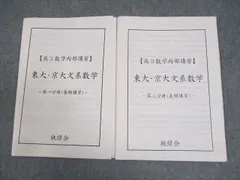 【高3数学内部講習】
東大・京大文系数学
-第一分冊(夏期講習)-
鉄緑会
【高3数学内部講習】
東大・京大文系数学
-第二分冊(夏期講習)-
鉄緑会